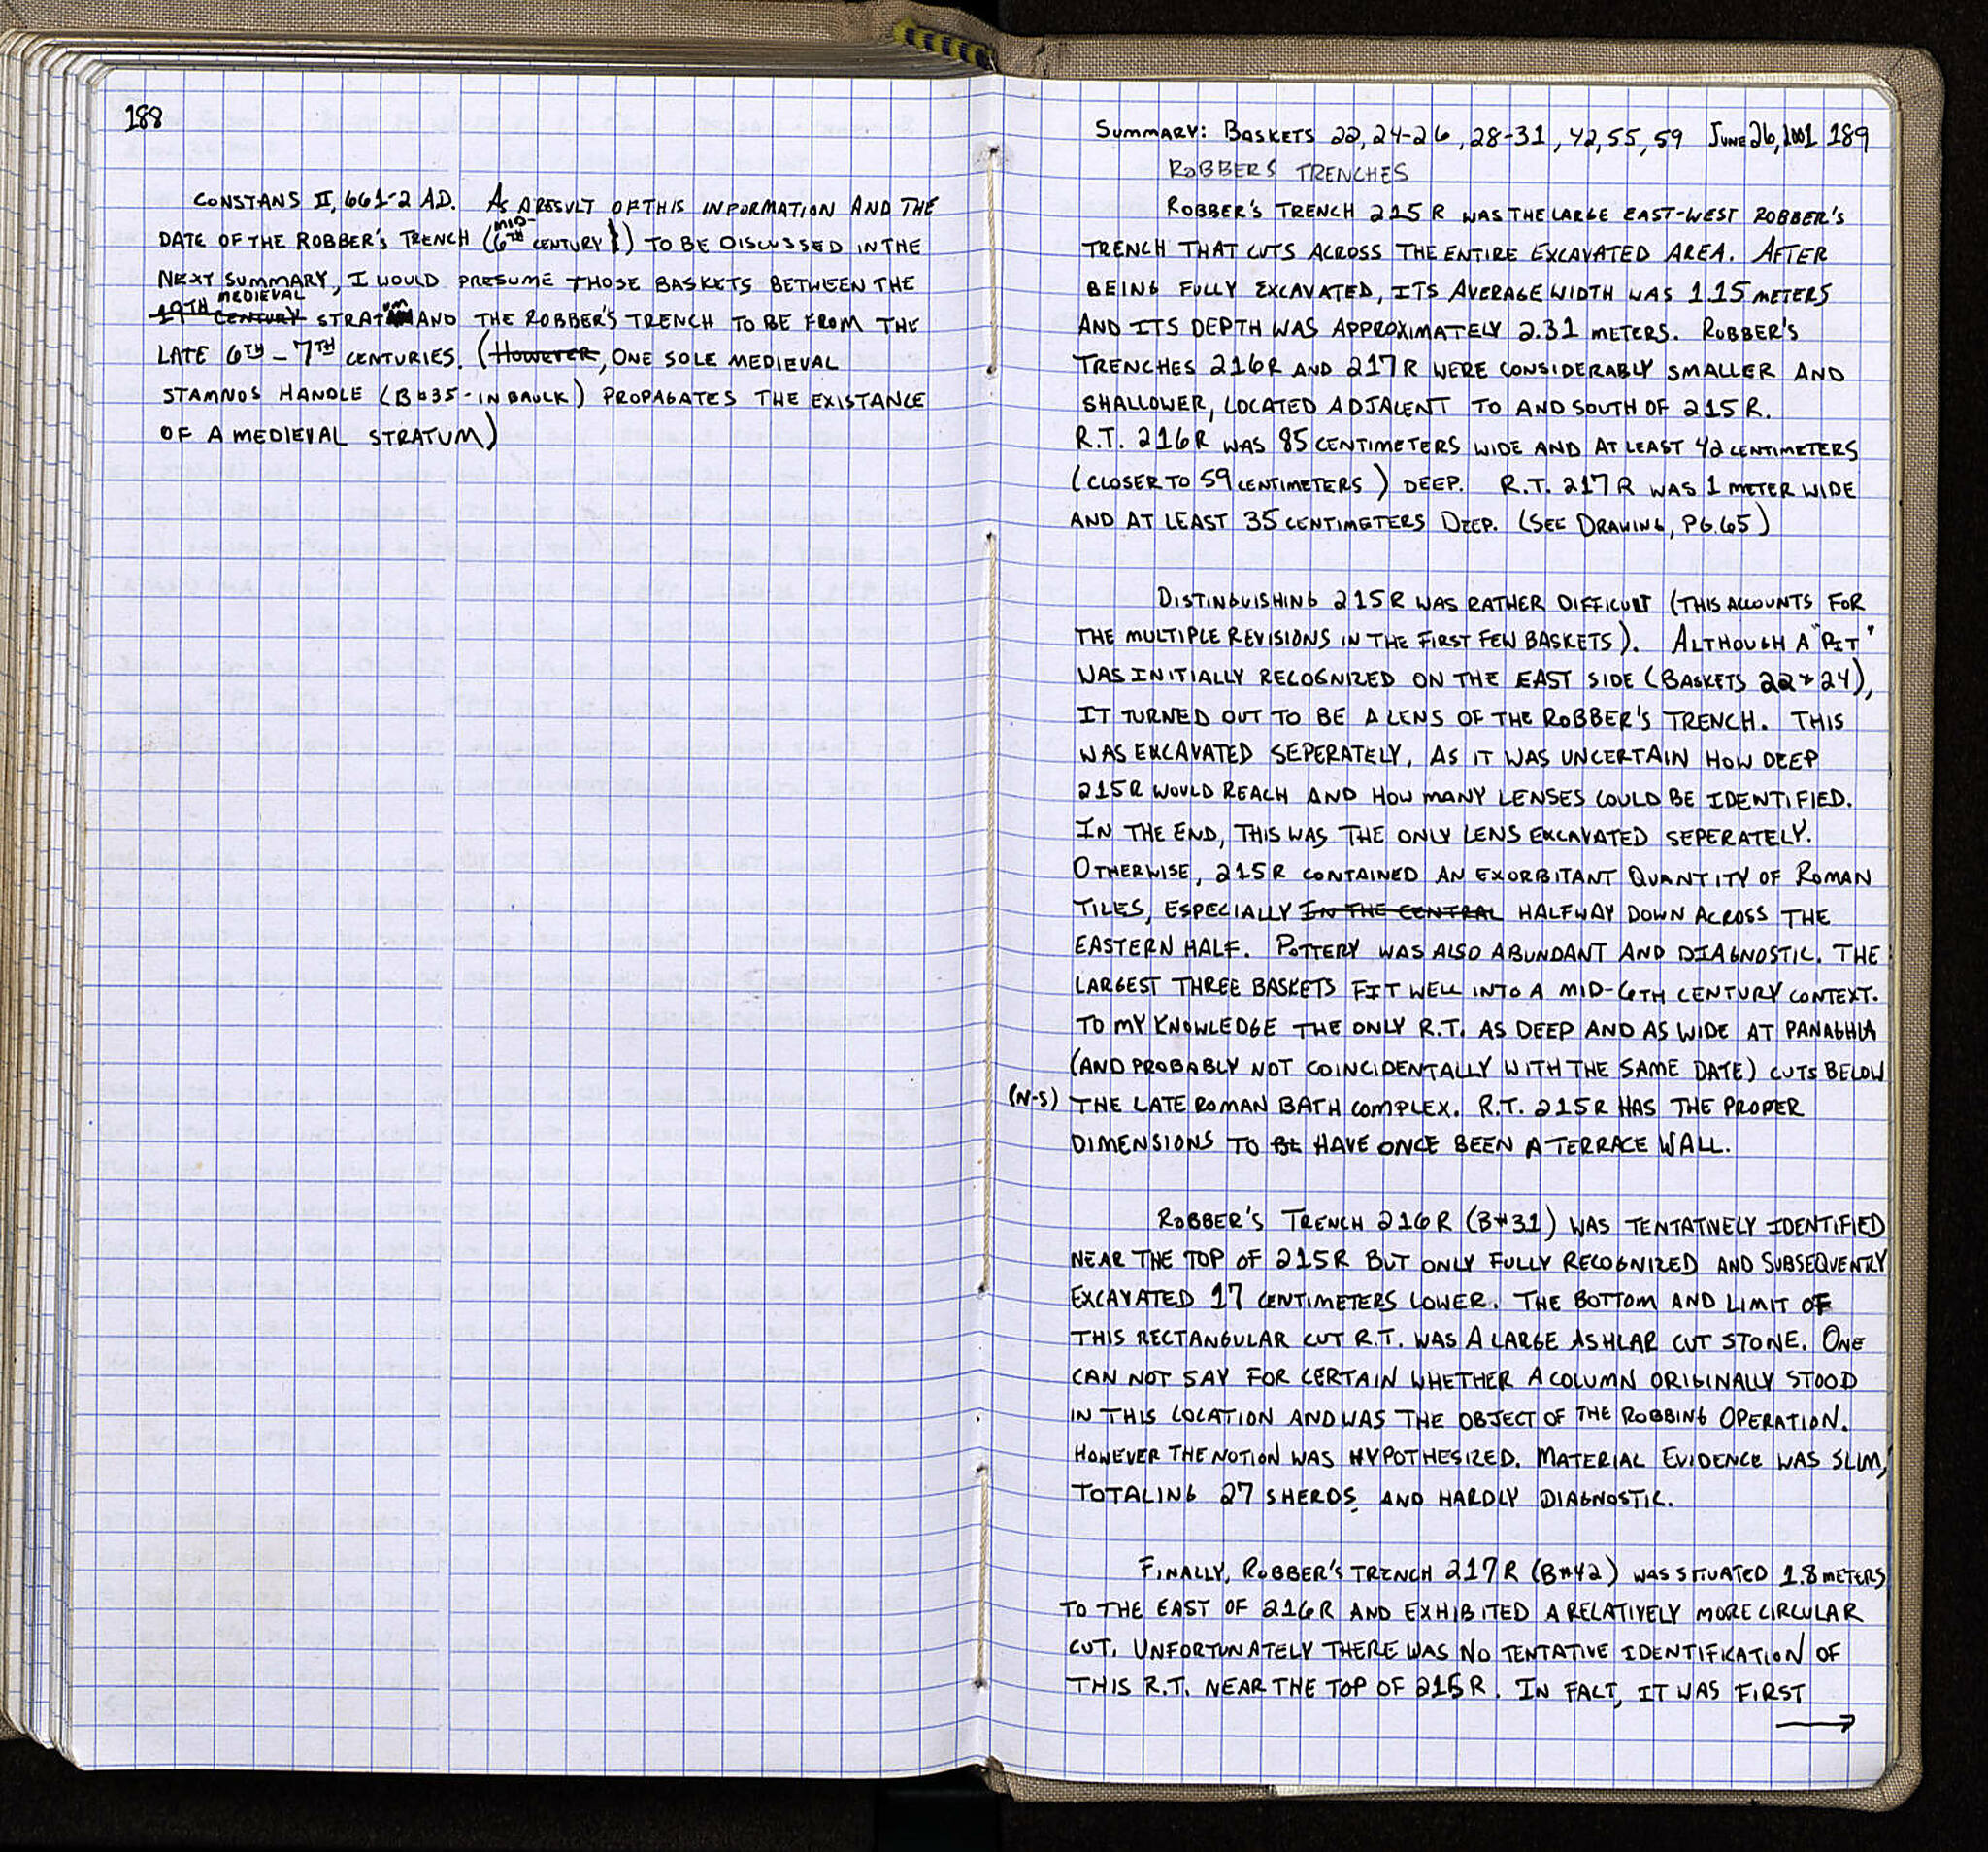 188
CONSTANS II, 661-2 AD. AS A RESULT OF THIS INFORMATION AND THE
DATE OF THE ROBBER'S TRENCH (MID-6TH CENTURY) TO BE DISCUSSED IN THE
NEXT SUMMARY, I WOULD PRESUME THOSE BASKETS BETWEEN THE
19TH CENTURY MEDIEVAL STRATUM AND THE ROBBER'S TRENCH TO BE FROM THE
LATE 6TH - 7TH CENTURIES. (HOWEVER, ONE SOLE MEDIEVAL
STAMNOS HANDLE (B#35 - IN BAULK) PROPAGATES THE EXISTANCE
OF A MEDIEVAL STRATUM)
SUMMARY: BASKETS 22, 24-26, 28-31, 42, 55, 59 JUNE 26, 2001 189
ROBBERS TRENCHES
ROBBER'S TRENCH 215R WAS THE LARGE EAST-WEST ROBBER'S
TRENCH THAT CUTS ACROSS THE ENTIRE EXCAVATED AREA. AFTER
BEING FULLY EXCAVATED, ITS AVERAGE WIDTH WAS 1.15 METERS
AND ITS DEPTH WAS APPROXIMATELY 2.31 METERS. ROBBER'S
TRENCHES 216R AND 217R WERE CONSIDERABLY SMALLER AND
SHALLOWER, LOCATED ADJACENT TO AND SOUTH OF 215R.
R.T. 216R WAS 85 CENTIMETERS WIDE AND AT LEAST 42 CENTIMETERS
(CLOSER TO 59 CENTIMETERS) DEEP. R.T. 217R WAS 1 METER WIDE
AND AT LEAST 35 CENTIMETERS DEEP. (SEE DRAWING, PG. 65)
DISTINGUISHING 215R WAS RATHER DIFFICULT (THIS ACCOUNTS FOR
THE MULTIPLE REVISIONS IN THE FIRST FEW BASKETS). ALTHOUGH A "PIT"
WAS INITIALLY RECOGNIZED ON THE EAST SIDE (BASKETS 22 + 24),
IT TURNED OUT TO BE A LENS OF THE ROBBER'S TRENCH. THIS
WAS EXCAVATED SEPERATELY, AS IT WAS UNCERTAIN HOW DEEP
215R WOULD REACH AND HOW MANY LENSES COULD BE IDENTIFIED.
IN THE END, THIS WAS THE ONLY LENS EXCAVATED SEPERATELY.
OTHERWISE, 215R CONTAINED AN EXORBITANT QUANTITY OF ROMAN
TILES, ESPECIALLY IN THE CENTRAL HALFWAY DOWN ACROSS THE
EASTERN HALF. POTTERY WAS ALSO ABUNDANT AND DIAGNOSTIC. THE
LARGEST THREE BASKETS FIT WELL INTO A MID-6TH CENTURY CONTEXT.
TO MY KNOWLEDGE THE ONLY R.T. AS DEEP AND AS WIDE AT PANAGHIA
(AND PROBABLY NOT COINCIDENTALLY WITH THE SAME DATE) CUTS BELOW
(N-S) THE LATE ROMAN BATH COMPLEX. R.T. 215R HAS THE PROPER
DIMENSIONS TO BE HAVE ONCE BEEN A TERRACE WALL.
ROBBER'S TRENCH 216R (B#31) WAS TENTATIVELY IDENTIFIED
NEAR THE TOP OF 215R BUT ONLY FULLY RECOGNIZED AND SUBSEQUENTLY
EXCAVATED 17 CENTIMETERS LOWER. THE BOTTOM AND LIMIT OF
THIS RECTANGULAR CUT R.T. WAS A LARGE ASHLAR CUT STONE. ONE
CAN NOT SAY FOR CERTAIN WHETHER A COLUMN ORIGINALLY STOOD
IN THIS LOCATION AND WAS THE OBJECT OF THE ROBBING OPERATION.
HOWEVER THE NOTION WAS HYPOTHESIZED. MATERIAL EVIDENCE WAS SLIM,
TOTALING 27 SHERDS AND HARDLY DIAGNOSTIC.
FINALLY, ROBBER'S TRENCH 217R (B#42) WAS SITUATED 1.8 METERS
TO THE EAST OF 216R AND EXHIBITED A RELATIVELY MORE CIRCULAR
CUT. UNFORTUNATELY THERE WAS NO TENTATIVE IDENTIFICATION OF
THIS R.T. NEAR THE TOP OF 215R. IN FACT, IT WAS FIRST
→